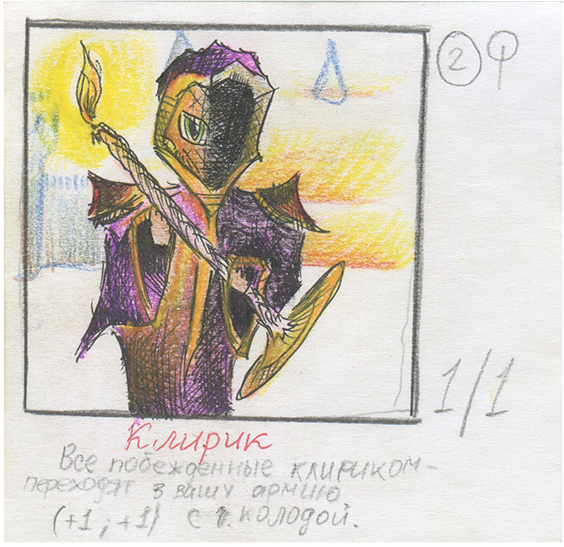 2
1/1
Клирик
Все побежденные клириком-
переходят в вашу армию
(+1; +1) с колодой.